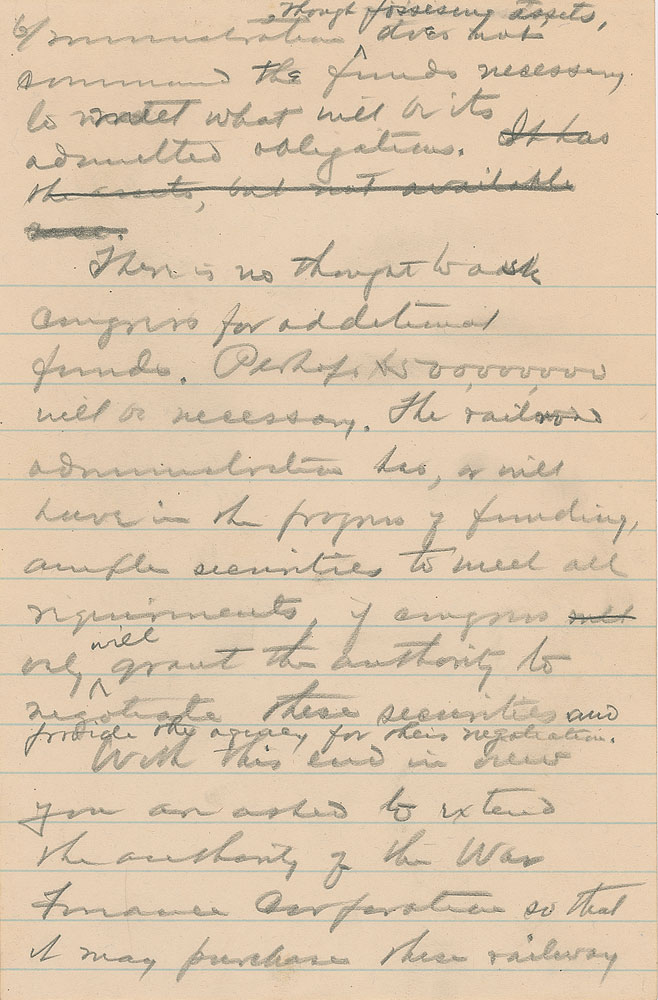 6/
Though possessing assets,
Administration ^ does not
command the funds necessary
to meet what will be its
admitted obligations. It has
the assets, but not available
There is no thought to ask
congress for additional
funds. Perhaps $500,000,000
will be necessary. The railroad
administration has, or will
have in the progress of funding,
ample securities to meet all
requirements, if congress will
will
only ^ grant the authority to
negotiate these securities and
provide the agency for their negotiation.
With this end in view
you are asked to extend
the authority of the War
Finance Corporation so that
it may purchase these railway